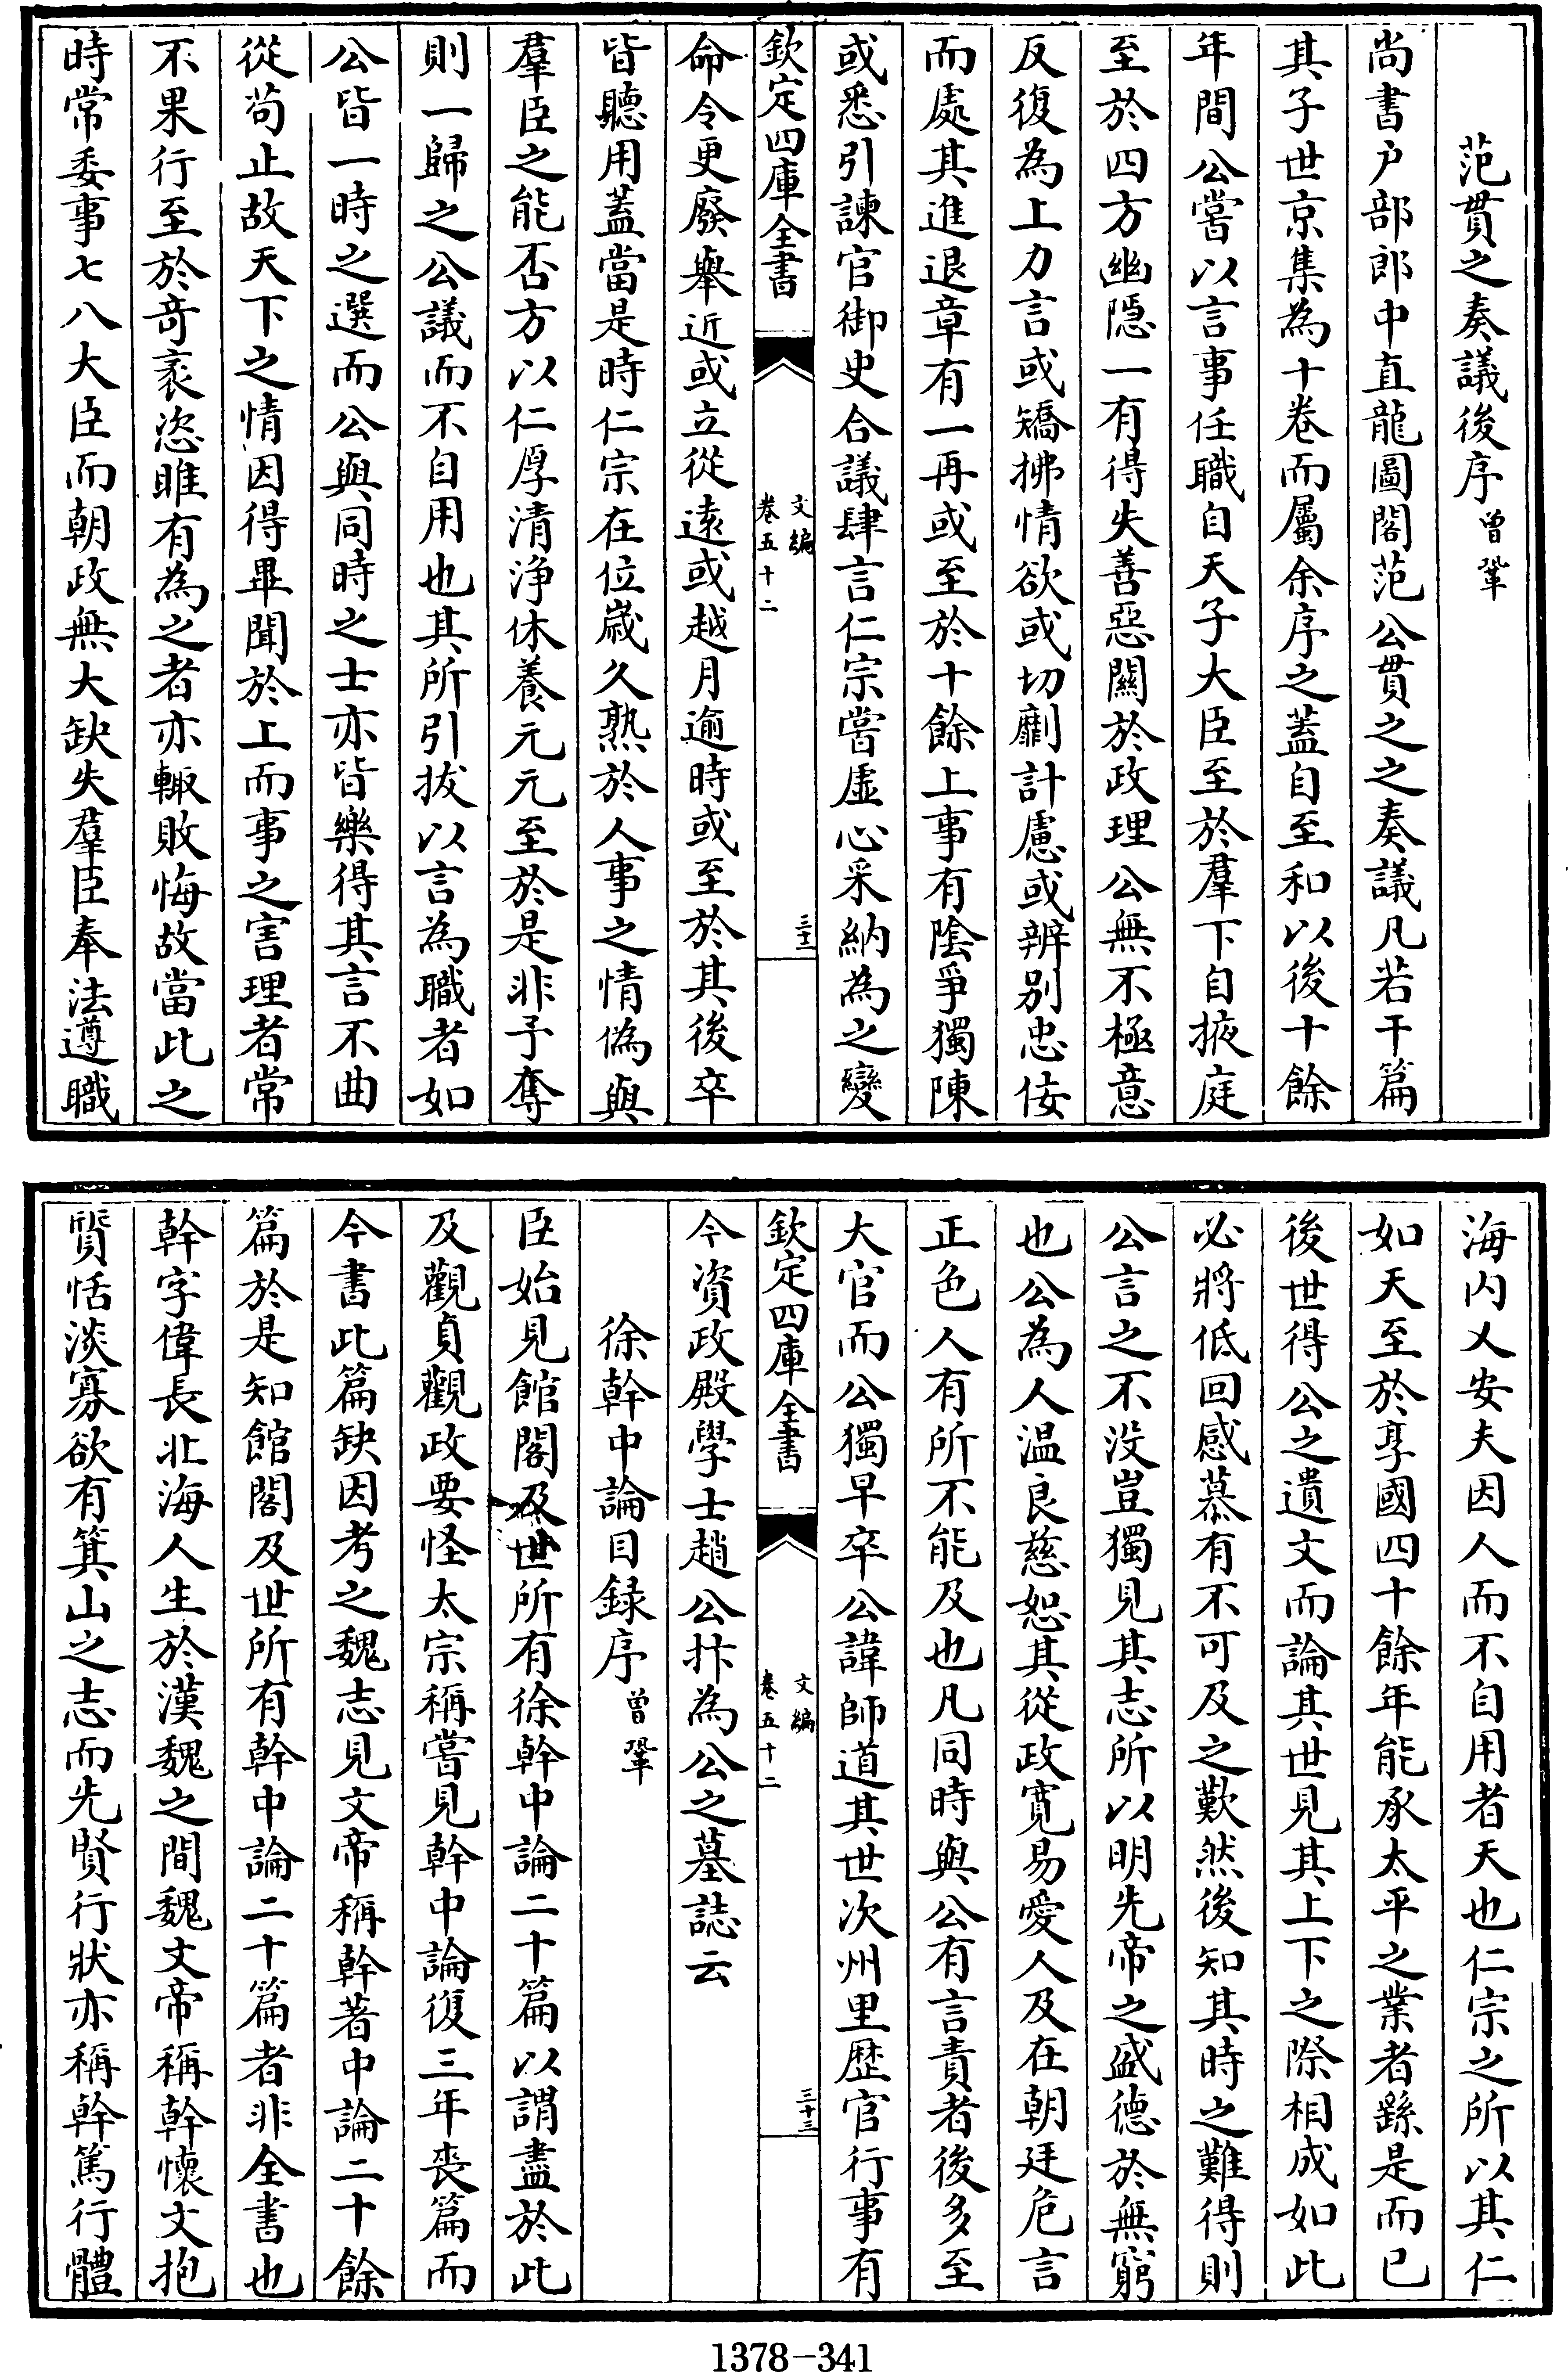 范貫之奏議後序曾鞏
尚書户部郎中直龍圖閣范公貫之之奏議凡若干篇
其子世京集為十卷而屬余序之蓋自至和以後十餘
年間公嘗以言事任職自天子大臣至於羣下自掖庭
至於四方幽隱一有得失善惡關於政理公無不極意
反復為上力言或矯拂情欲或切劘計慮或辨别忠佞
而處其進退章有一再或至於十餘上事有陰爭獨陳
或悉引諫官御史合議肆言仁宗嘗虛心采納為之變
欽定四庫全書
文編
卷五十二
三十二
命令更廢舉近或立從遠或越月逾時或至於其後卒
皆聽用蓋當是時仁宗在位嵗久熟於人事之情偽與
羣臣之能否方以仁厚清淨休養元元至於是非予奪
則一歸之公議而不自用也其所引拔以言為職者如
公皆一時之選而公與同時之士亦皆樂得其言不曲
從苟止故天下之情因得畢聞於上而事之害理者常
不果行至於奇衺恣睢有為之者亦輙敗悔故當此之
時常委事七八大臣而朝政無大缺失羣臣奉法遵職
海内乂安夫因人而不自用者天也仁宗之所以其仁
如天至於享國四十餘年能承太平之業者繇是而已
後世得公之遺文而論其世見其上下之際相成如此
必將低回感慕有不可及之歎然後知其時之難得則
公言之不没豈獨見其志所以明先帝之盛德於無窮
也公為人温良慈恕其從政寛易愛人及在朝廷危言
正色人有所不能及也凡同時與公有言責者後多至
大官而公獨早卒公諱師道其世次州里歴官行事有
欽定四庫全書
文編
卷五十二
三十三
今資政殿學士趙公抃為公之墓誌云
徐幹中論目録序曾鞏
臣始見館閣及世所有徐幹中論二十篇以謂盡於此
及觀貞觀政要怪太宗稱嘗見幹中論復三年喪篇而
今書此篇缺因考之魏志見文帝稱幹著中論二十餘
篇於是知館閣及世所有幹中論二十篇者非全書也
幹字偉長北海人生於漢魏之間魏文帝稱幹懷文抱
質恬淡寡欲有箕山之志而先賢行狀亦稱幹篤行體
1378-341